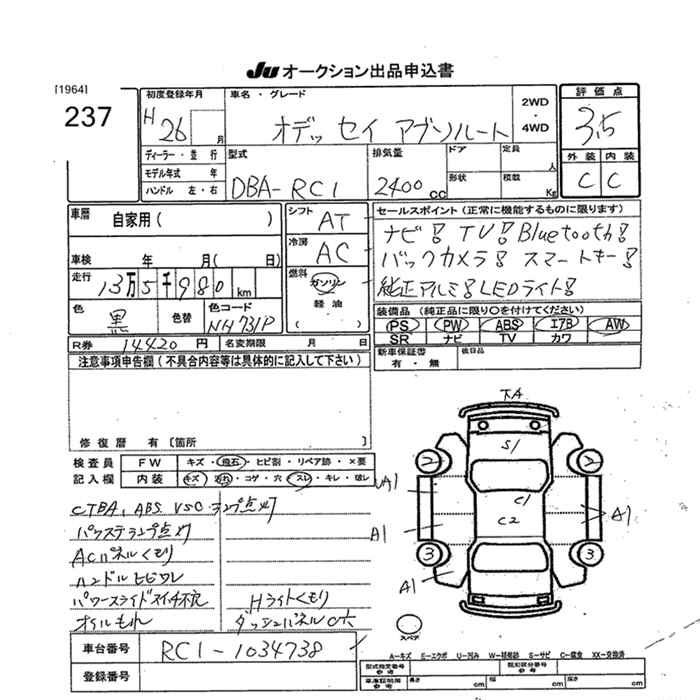 JU オークション出品申込書
[1964]
237
初度登録年月
H 26 月
車名・グレード
オデッセイ アブソルート
2WD
・
4WD
評価点
3.5
ディーラー・並行
モデル年式 年
ハンドル 左・右
型式
DBA-RC1
排気量
2400 cc
ドア
形状
定員
人
積載
Kg
外装 内装
C C
車暦
自家用( )
シフト AT
車検 年 月( 日)
冷房 AC
走行
13万5千980 km
燃料
ガソリン
軽油
( )
色 黒 色替 色コード NH731P
セールスポイント(正常に機能するものに限ります)
ナビ! TV! Bluetooth!
バックカメラ! スマートキー!
純正アルミ! LEDライト!
装備品(純正品に限り○を付けてください)
PS PW ABS エアB AW
SR ナビ TV カワ
R券 14420 円 名変期限 月 日
新車保証書 後日品
有・無
注意事項申告欄(不具合内容等は具体的に記入して下さい)
修復歴 有〔箇所 〕
検査員 FW キズ・飛石・ヒビ割・リペア跡・×要
記入欄 内装 キズ・汚れ・コゲ・穴・スレ・キレ・破レ
CTBA, ABS VSC ランプ点灯
パワステランプ点灯
ACパネルくもり
ハンドルヒビワレ
パワースライドスイッチ不良
オイルもれ
Hライトくもり
ダッシュパネル穴
下A
S1
C1
C2
A1
A1
A1
A1
2
2
3
3
スペア
A-キズ E-エクボ U-凹み W-補修跡 S-サビ C-腐食 XX-交換済
車台番号 RC1-1034738
登録番号
型式指定番号
参考
類別区分番号
参考
車庫証明用
参考
長さ cm 幅 cm 高さ cm